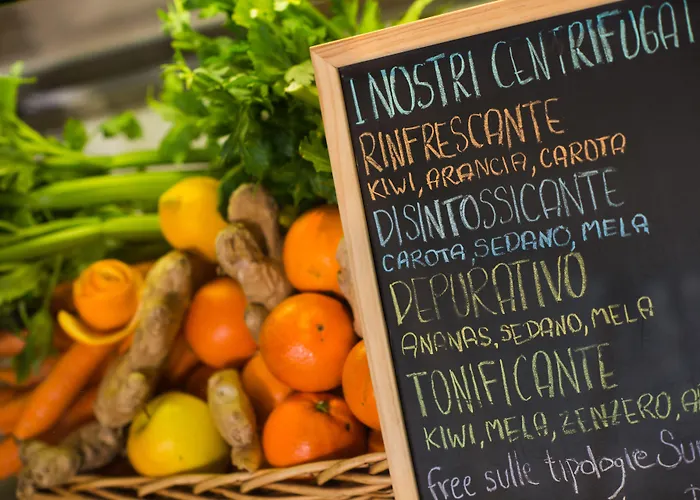 I NOSTRI CENTRIFUGATI
RINFRESCANTE
KIWI, ARANCIA, CAROTA
DISINTOSSICANTE
CAROTA, SEDANO, MELA
DEPURATIVO
ANANAS, SEDANO, MELA
TONIFICANTE
KIWI, MELA, ZENZERO,
free sulle tipologie